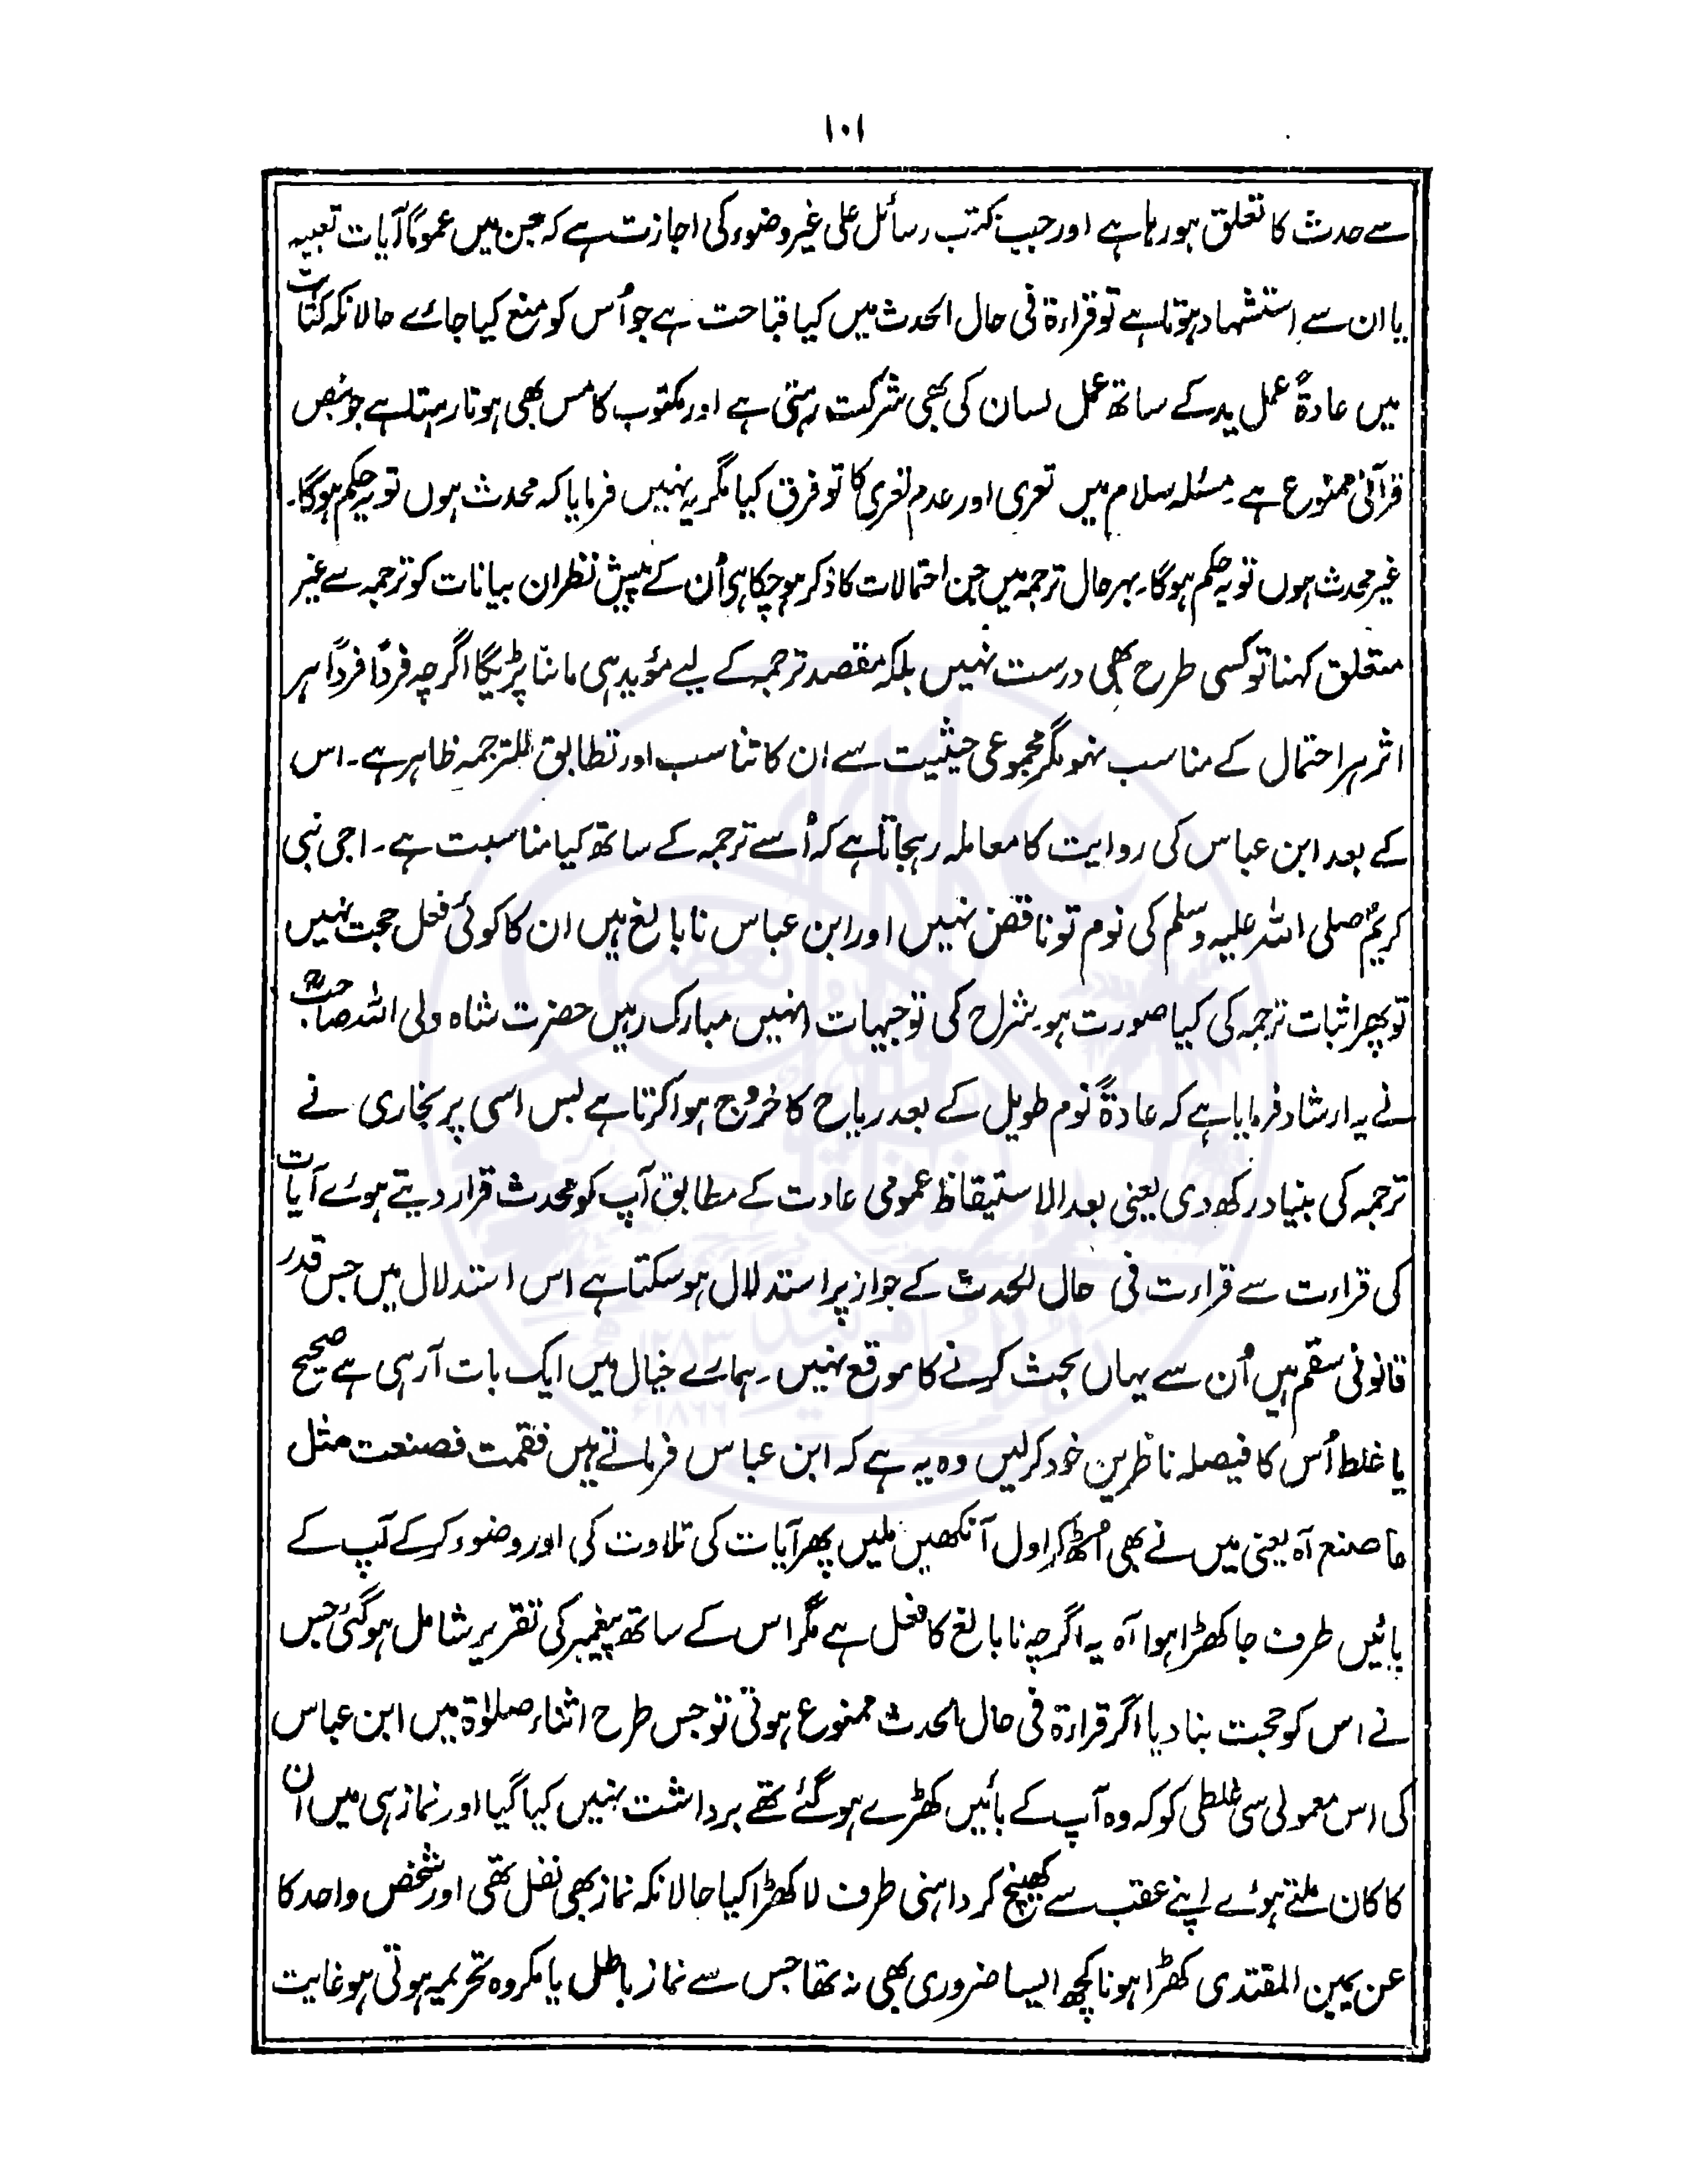 ۱۰۱
سے حدث کا تعلق ہو رہا ہے اور جب کتب رسائل علی غیر وضوء کی اجازت ہے کہ جن میں عموماً آیات تعبیہ
یا ان سے استشہاد ہوتا ہے تو قراءۃ فی حال الحدث میں کیا قباحت ہے جو اُس کو منع کیا جائے حالانکہ کتابت
میں عادۃً عمل ید کے ساتھ عمل لسان کی بھی شرکت رہتی ہے اور مکتوب کا مس بھی ہوتا رہتا ہے جو بنص
قرآنی ممنوع ہے مسئلہ سلام میں تعری اور عدم تعری کا تو فرق کیا مگر یہ نہیں فرمایا کہ محدث ہوں تو یہ حکم ہوگا۔
غیر محدث ہوں تو یہ حکم ہوگا۔ بہر حال ترجمہ میں جن احتمالات کا ذکر ہو چکا ہی اُن کے پیش نظر ان بیانات کو ترجمہ سے غیر
متعلق کہنا تو کسی طرح بھی درست نہیں بلکہ مقصد ترجمہ کے لیے مؤید ہی ماننا پڑیگا اگر چہ فرداً فرداً ہر
اثر ہر احتمال کے مناسب نہو مگر مجموعی حیثیت سے ان کا تناسب اور تطابق للترجمہ ظاہر ہے۔ اس
کے بعد ابن عباس کی روایت کا معاملہ رہجاتا ہے کہ اُسے ترجمہ کے ساتھ کیا مناسبت ہے۔ اجی نبی
کریمؐ صلی اللہ علیہ وسلم کی نوم تو ناقض نہیں اور ابن عباس نابالغ ہیں ان کا کوئی فعل حجت نہیں
تو پھر اثبات ترجمہ کی کیا صورت ہو۔ شراح کی توجیہات انہیں مبارک رہیں حضرت شاہ ولی اللہ صاحبؒ
نے یہ ارشاد فرمایا ہے کہ عادۃً نوم طویل کے بعد ریاح کا خروج ہوا کرتا ہے بس اسی پر بخاری نے
ترجمہ کی بنیاد رکھدی یعنی بعد الاستیقاظ عمومی عادت کے مطابق آپ کو محدث قرار دیتے ہوئے آیات
کی قراءت سے قراءت فی حال الحدث کے جواز پر استدلال ہو سکتا ہے اس استدلال میں جس قدر
قانونی سقم ہیں اُن سے یہاں بحث کرنے کا موقع نہیں۔ ہمارے خیال میں ایک بات آرہی ہے صحیح
یا غلط اُس کا فیصلہ ناظرین خود کرلیں وہ یہ ہے کہ ابن عباس فرماتے ہیں فقمت فصنعت مثل
ما صنع آہ یعنی میں نے بھی اُٹھ کر اول آنکھیں ملیں پھر آیات کی تلاوت کی اور وضوء کرکے آپ کے
بائیں طرف جا کھڑا ہوا آہ یہ اگر چہ نابالغ کا فعل ہے مگر اس کے ساتھ پیغمبر کی تقریر شامل ہو گئی جس
نے اس کو حجت بنا دیا اگر قراءۃ فی حال الحدث ممنوع ہوتی تو جس طرح اثناء صلوٰۃ میں ابن عباس
کی اس معمولی سی غلطی کو کہ وہ آپ کے بائیں کھڑے ہو گئے تھے برداشت نہیں کیا گیا اور نماز ہی میں ان
کا کان ملتے ہوئے اپنے عقب سے کھینچ کر داہنی طرف لا کھڑا کیا حالانکہ نماز بھی نفل تھی اور شخص واحد کا
عن یمین المقتدی کھڑا ہونا کچھ ایسا ضروری بھی نہ تھا جس سے نماز باطل یا مکروہ تحریمہ ہوتی ہو غایت